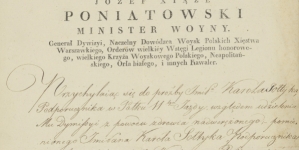 JÓZEF XIĄŻĘ
PONIATOWSKI
MINISTER WOYNY.
Generał Dywizyi, Naczelny Dowódzca Woysk Polskich Xięstwa
Warszawskiego, Orderów wielkiéy Wstęgi Legionu honorowe-
go, wielkiego Krzyża Woyskowego Polskiego, Neapolitań-
skiego, Orła białego, i innych Kawaler.
Przychylaiąc się do prośby Imć Karola
Podporucznika w Pułku 11tm Jazdy względem
Mu Dymissyi z powodu zdrowia
Imć Pana Karola Podporucznika